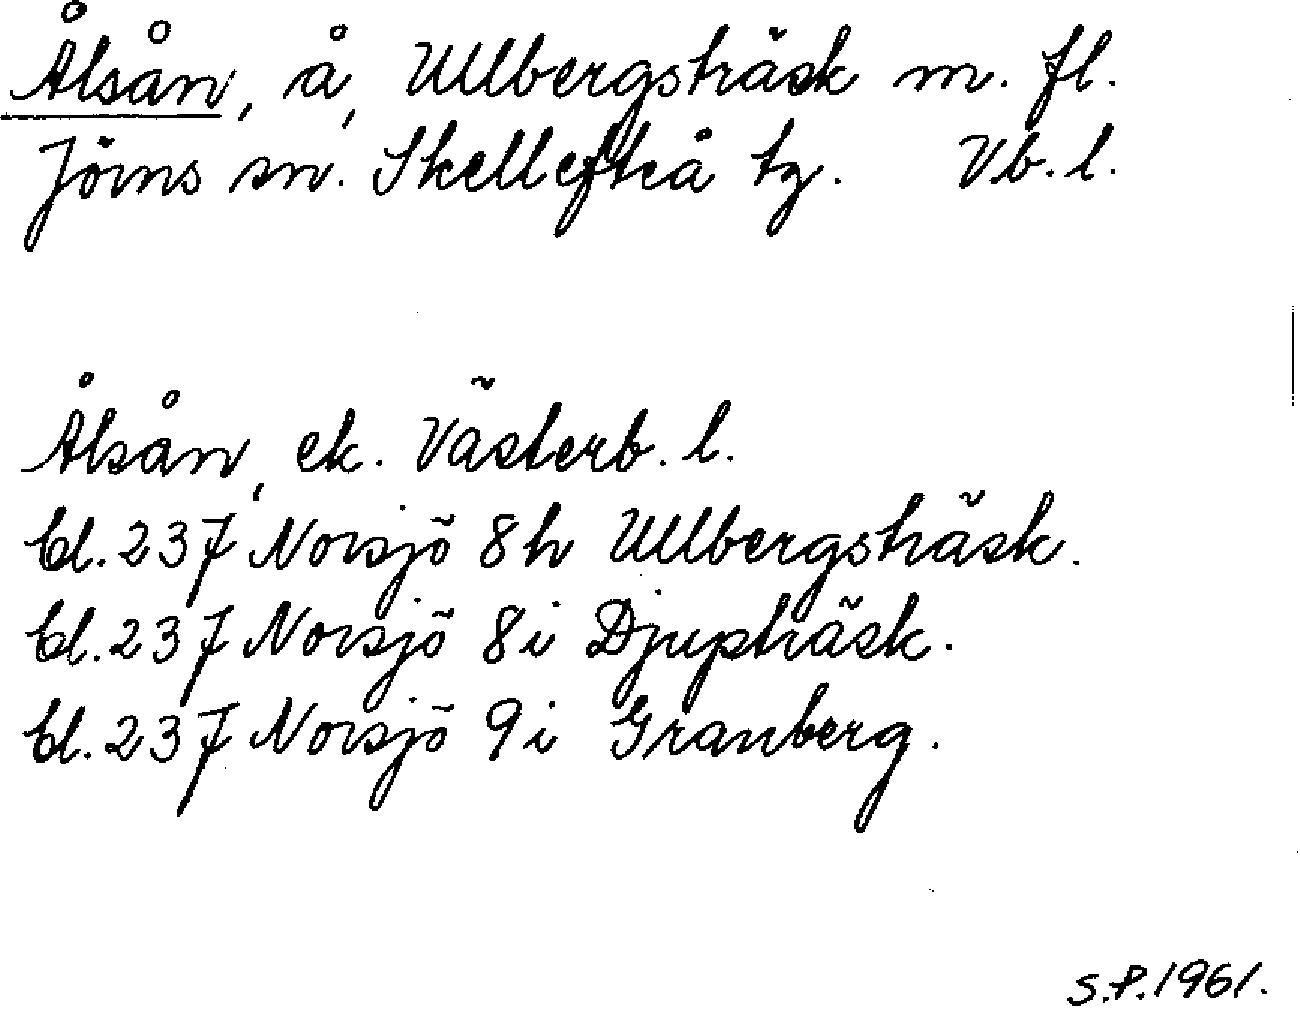 Ålsån, å, Ullbergsträsk m. fl.
Jörns sn. Skellefteå tg. Vb. l.
Ålsån, ek. Västerb. l.
bl. 237 Norsjö 8h Ullbergsträsk.
bl. 237 Norsjö 8i Djupträsk.
bl. 237 Norsjö 9i Granberg.
S.P. 1961.